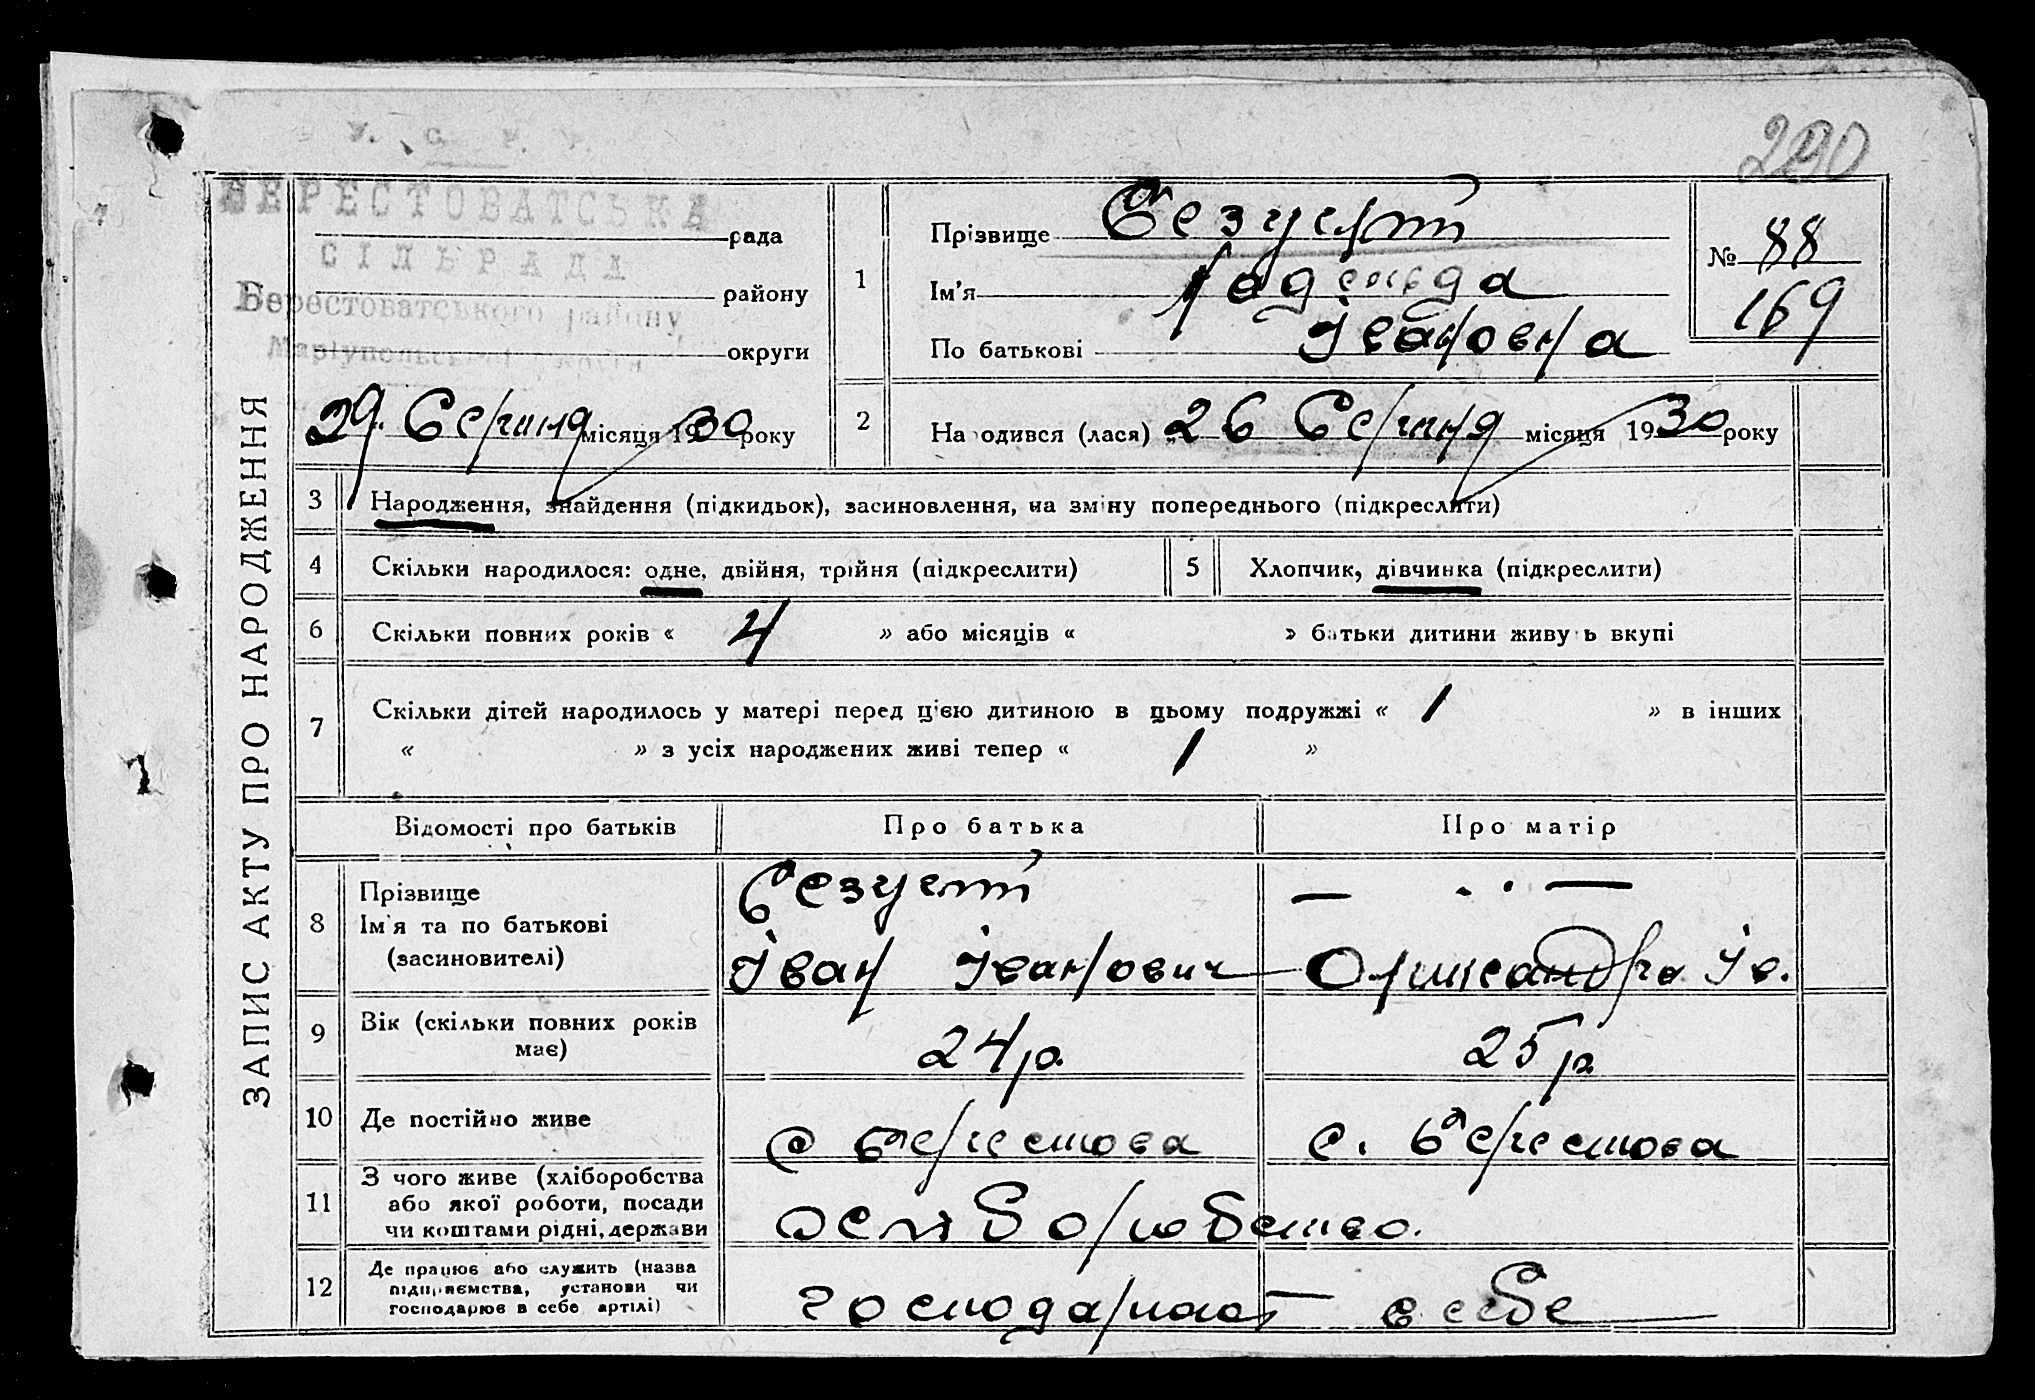 290
У. С. Р. Р.
БЕРЕСТОВАТСЬКА
рада
СІЛЬРАДА
району
Берестоватського району
округи
29. Серпня місяця 1930 року
1
Прізвище
Ім'я
По батькові Івановна
№ 88
169
2
Народився (лася) „26 Серпня місяця 1930 року
ЗАПИС АКТУ ПРО НАРОДЖЕННЯ
3 Народження, знайдення (підкидьок), засиновлення, на зміну попереднього (підкреслити)
4 Скільки народилося: одне, двійня, трійня (підкреслити)
5 Хлопчик, дівчинка (підкреслити)
6 Скільки повних років « 4 » або місяців « » батьки дитини живуть вкупі
7 Скільки дітей народилось у матері перед цією дитиною в цьому подружжі « 1 » в інших
« » з усіх народжених живі тепер « 1 »
Відомості про батьків Про батька Про матір
8 Прізвище
Ім'я та по батькові
(засиновителі)
Іван Іванович
Ів.
9 Вік (скільки повних років
має)
24 р. 25 р.
10 Де постійно живе с Берестова с. Берестова
11 З чого живе (хліборобства
або якої роботи, посади
чи коштами рідні, держави
хліборобство.
12 Де працює або служить (назва
підприємства, установи чи
господарює в себе артілі)
в себе